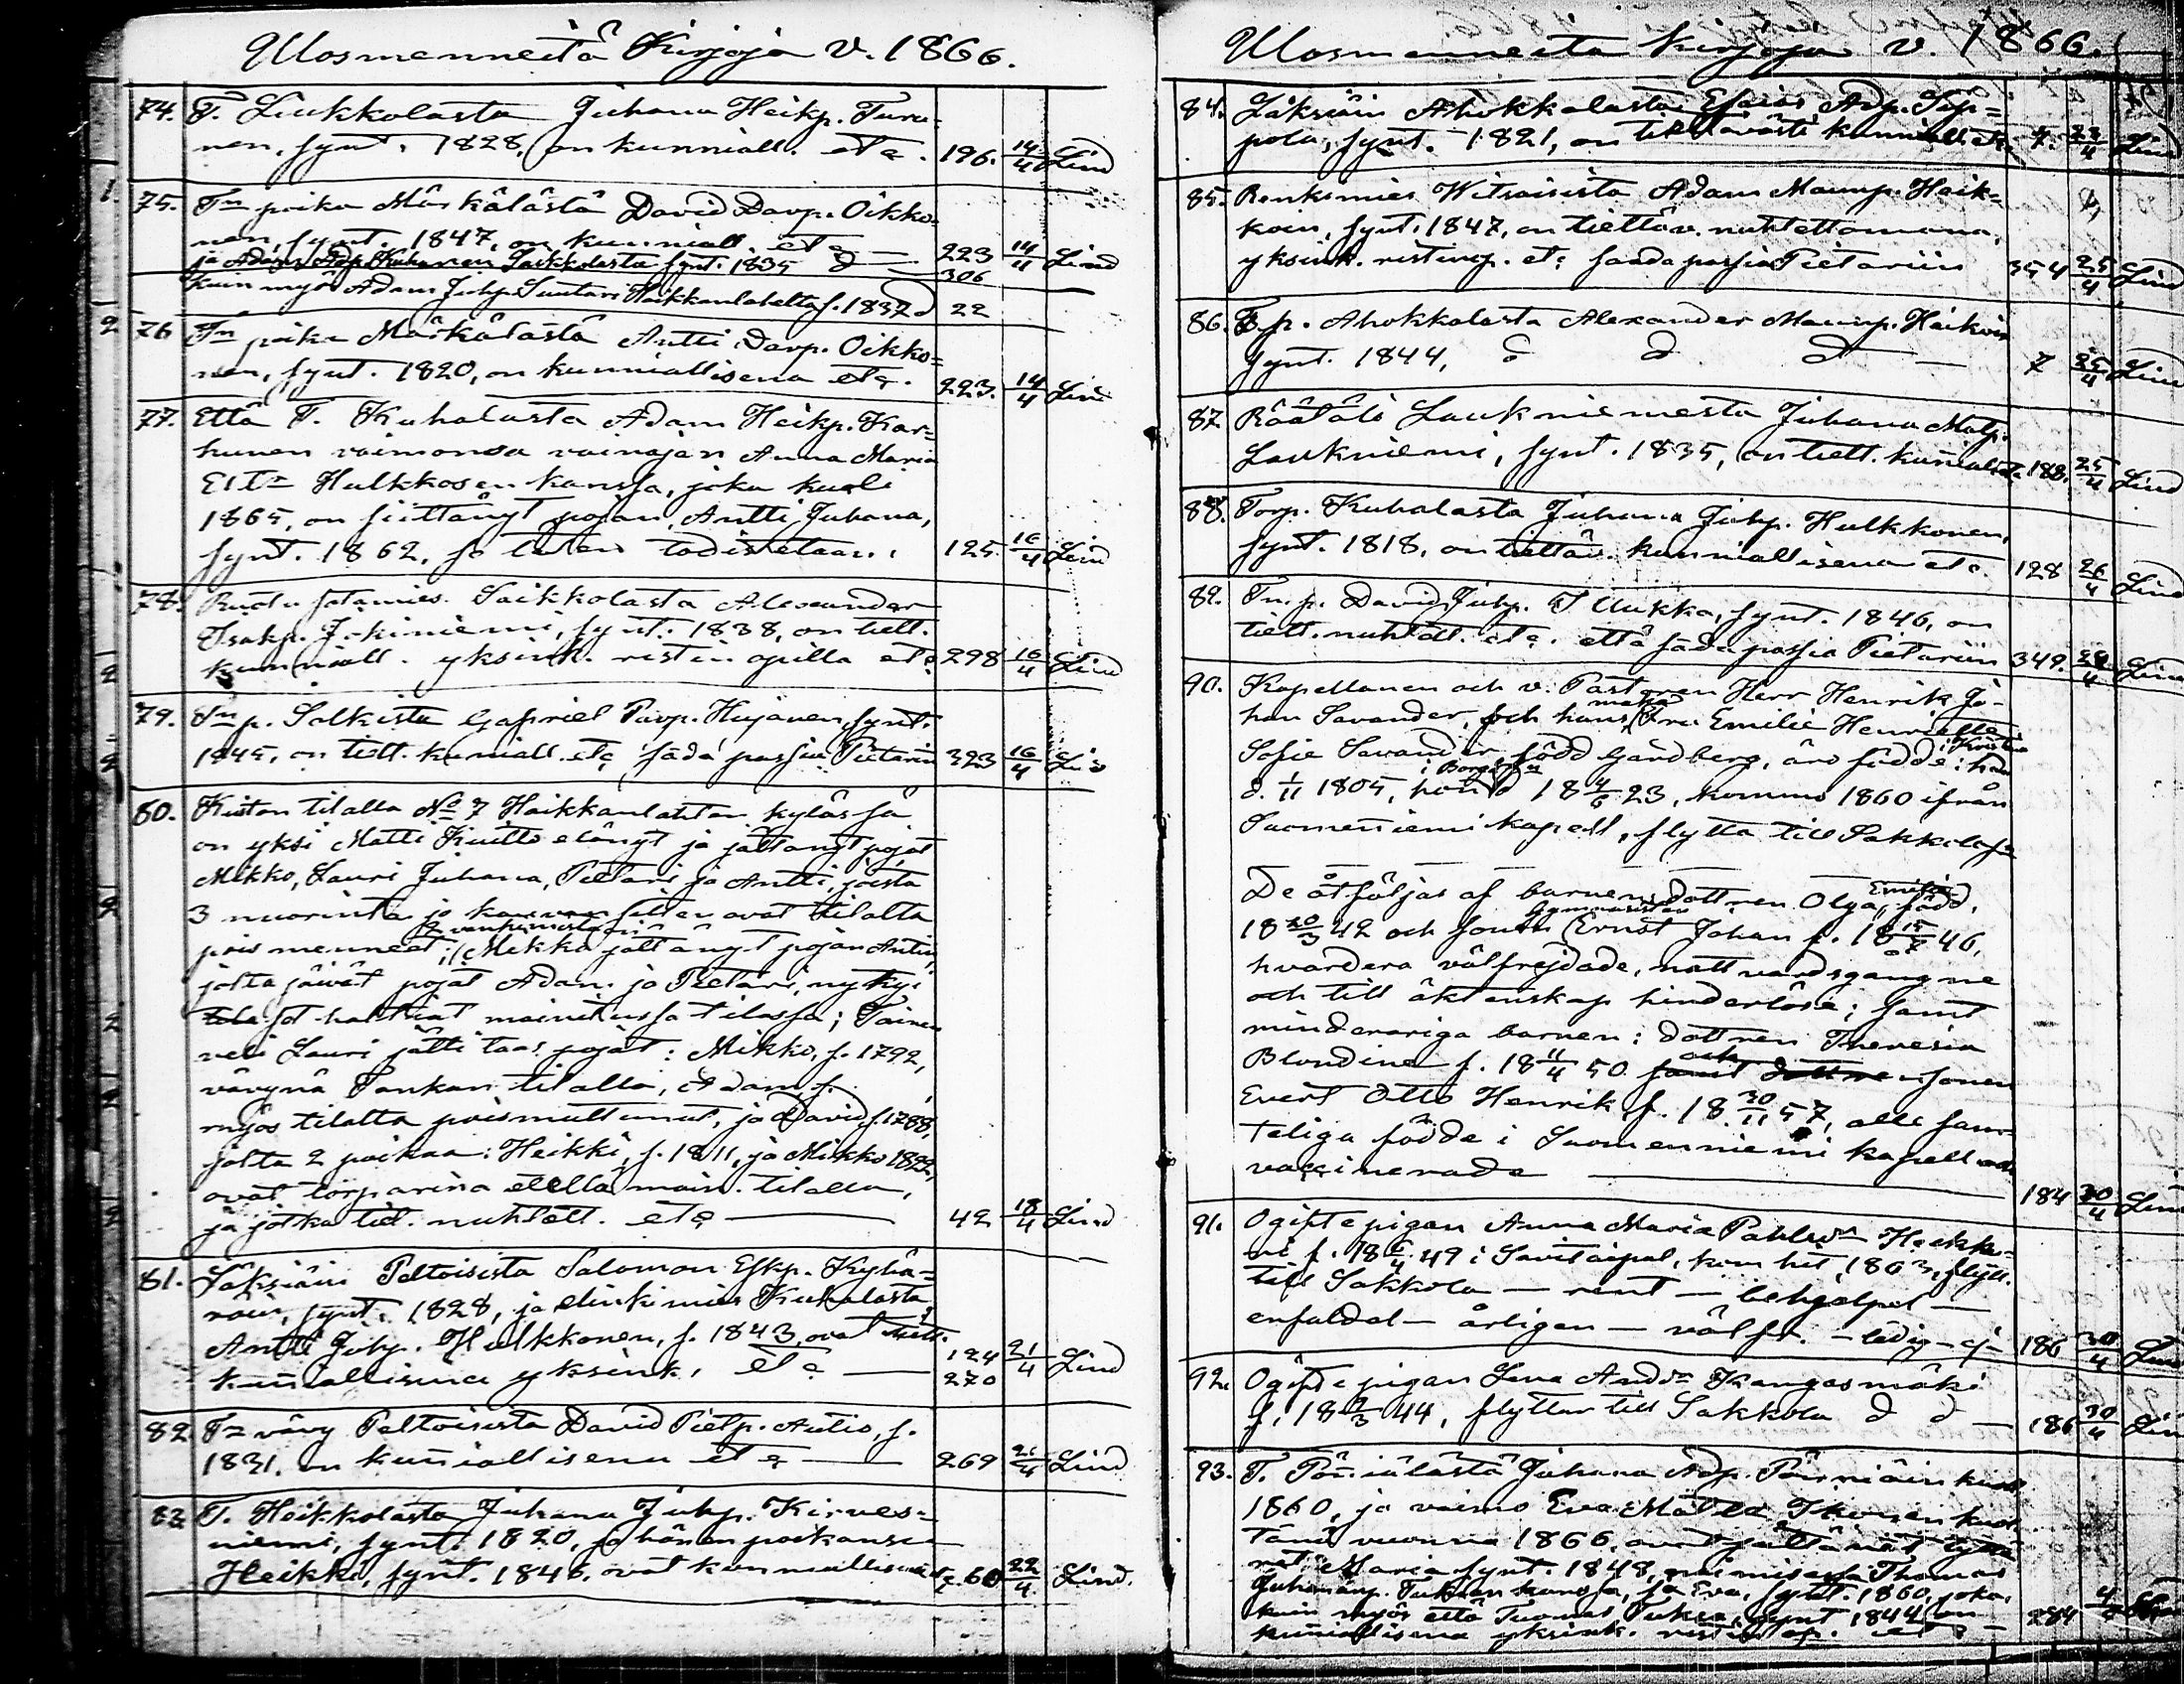 Ulosmenneitä Kirjoja v. 1866.
74. T. Liukkolasta Juhana Heikp. Turu-
nen, synt. 1828, on kunniall. etc. 196. 14/4 Lind
75. Tn poika Märkälästä David Davp. Oikko-
nen, synt. 1847, on kunniall. etc — 223 14/4 Lind
ja Adam Adp. Kuhanen Saikkolasta synt. 1835 d — 306
kuin myös Adam Juhp. Suutari Haikkanlahelta f. 1837 d 22
76 Tn poika Märkälästä Antti Davp. Oikko=
nen, synt. 1820, on kunniallisena etc. 223. 14/4 Lind
77. Että T. Kuhalasta Adam Heikp. Kar=
hunen vaimonsa vainajan Anna Maria
Hulkkosen kanssa, joka kuoli
1865, on siittänyt pojan, Antti Juhana,
synt. 1862, se täten todistetaan. 125. 16/4 Lind
78. Saikkolasta Alexander
Isakp. Jokiniemi, synt. 1838, on tiett.
kunniall. yksink. ristinopilla etc 298 16/4 Lind
79. Tn p. Solkista Gabriel Pavp. Hujanen, synt.
1845, on tiett. kuniall. etc, saada passia Pietariin 323 16/4 Lind
80. Kiiston tilalla No 7 Haikkanlahten kylässä
on yksi Matti Kiutto elänyt ja jättänyt pojat
Mikko, Lauri Juhana, Pietari ja Antti, joista
3 nuorinta jo kauvan sitten ovat tilalta
pois menneet; 2 vanhimmista Mikko jättänyt pojan Antin,
jolta jäivät pojat Adam ja Pietari, nyky-
set haltiat mainitussa tilassa; Toinen
veli Lauri jätti taas pojat: Mikko, f. 1792,
vävynä Pankan tilalla, Adam f.
myös tilalta poismuttunut, ja David f. 1788,
jolta 2 poikaa: Heikki, f. 1811, ja Mikko 1822,
ovat torparina etellä main. tilalla,
ja jotka tiet. nuhtett. etc — 42 18/4 Lind
81. Läksiäin Peltoisista Salomon Eskp. Kyhä=
roin, synt. 1828, ja elinkimies Kuhalasta
Antti Juhp. Hulkkonen, f. 1843, ovat tiett. 124
kunniallisina yksink. etc — 270 21/4 Lind
82 Tn vävy Peltoisista David Pietp. Autio, f.
1831, on kunniallisena etc — 269 21/4 Lind
83 T. Hoikkolasta Juhana Juhp. Kirves=
niemi, synt. 1820, ja hänen poikansa
Heikki, synt. 1846, ovat kunniallisina etc. 60 22/4 Lind.
Ulosmenneitä kirjoja v. 1866.
84. Läksiäin Ahokkalasta Esaias Adp. Sop=
pola, synt. 1821, on tiettävästi kunniall. etc. 7. 23/4 Lind
85. Renkimies Witsaisista Adam Maunp. Heik=
koin, synt. 1847, on tiettäv. nuhtettomana,
yksink. ristinop. etc saada passia Pietariin 354 25/4 Lind
86. T. p. Ahokkalasta Alexander Maunp. Heikoin
synt. 1844, d d d — 7 25/4 Lind
87 Räätäli Laukniemestä Juhana Matp.
Laukniemi, synt. 1835, on tiett. kunniall. etc. 188. 25/4 Lind
88. Torp. Kuhalasta Juhana Juhp. Hulkkonen,
synt. 1818, on tiettäv. kunniallisena etc. 128 26/4 Lind
89. Tn. p. David Juhp. Tiukka, synt. 1846, on
tiett. nuhtett. etc. että saada passia Pietariin 349. 29/4 Lind
90. Kapellanen och v. Pastoren Herr Henrik Jo-
han Savander, och hans maka Fru Emilie Henriette
Sofie Savander född Gardberg, äro födde: han i Kristina
d. 1/11 1805, hon i Borgå d 18 4/6 23, komne 1860 ifrån
Suomenniemi kapell, flytta till Sakkola s:n
De åtföljas af barnen: dottren Olga Emilie, född
18 20/3 42 och sonen Gymnasisten Ernst Johan f. 18 15/7 46,
hvardera välfrejdade, nattvardsgångne
och till äktenskap hinderlöse; samt
minderåriga barnen: dottren Theresia
Blondine f. 18 11/4 50 och sonen
Evert Otto Henrik f. 18 30/11 57, alle sam-
teliga födde i Suomenniemi kapell och
vaccinerade — 184 30/4 Lind
91. Ogifte pigan Anna Maria Pahlsdr Heikko-
ni f. 18 6/4 49 i Savitaipal, kom hit 1863, flytt.
till Sakkola — rent — behjelpel —
enfaldel — årligen — väl fr. — ledig — ej — 186 30/4 Lind
92. Ogifte pigan Lena Andsdr Kangasmäki
f. 18 2/3 44, flyttar till Sakkola d d — 186 30/4 Lind
93. T. Pärniälästä Juhana Adp. Pärniäin kuol.
1860, ja vaimo Eva Matta Ikonen kuol.
tänä vuonna 1866, ovat jättänät tyttä-
ret: Maria synt. 1848, naimisessa Thomas
Juhananp. Tuksan kanssa, ja Eva, synt. 1860, joka,
kuin myös että Tuomas Tuksa, synt. 1844, on
kunniallisena yksink. ristinop. etc — 284